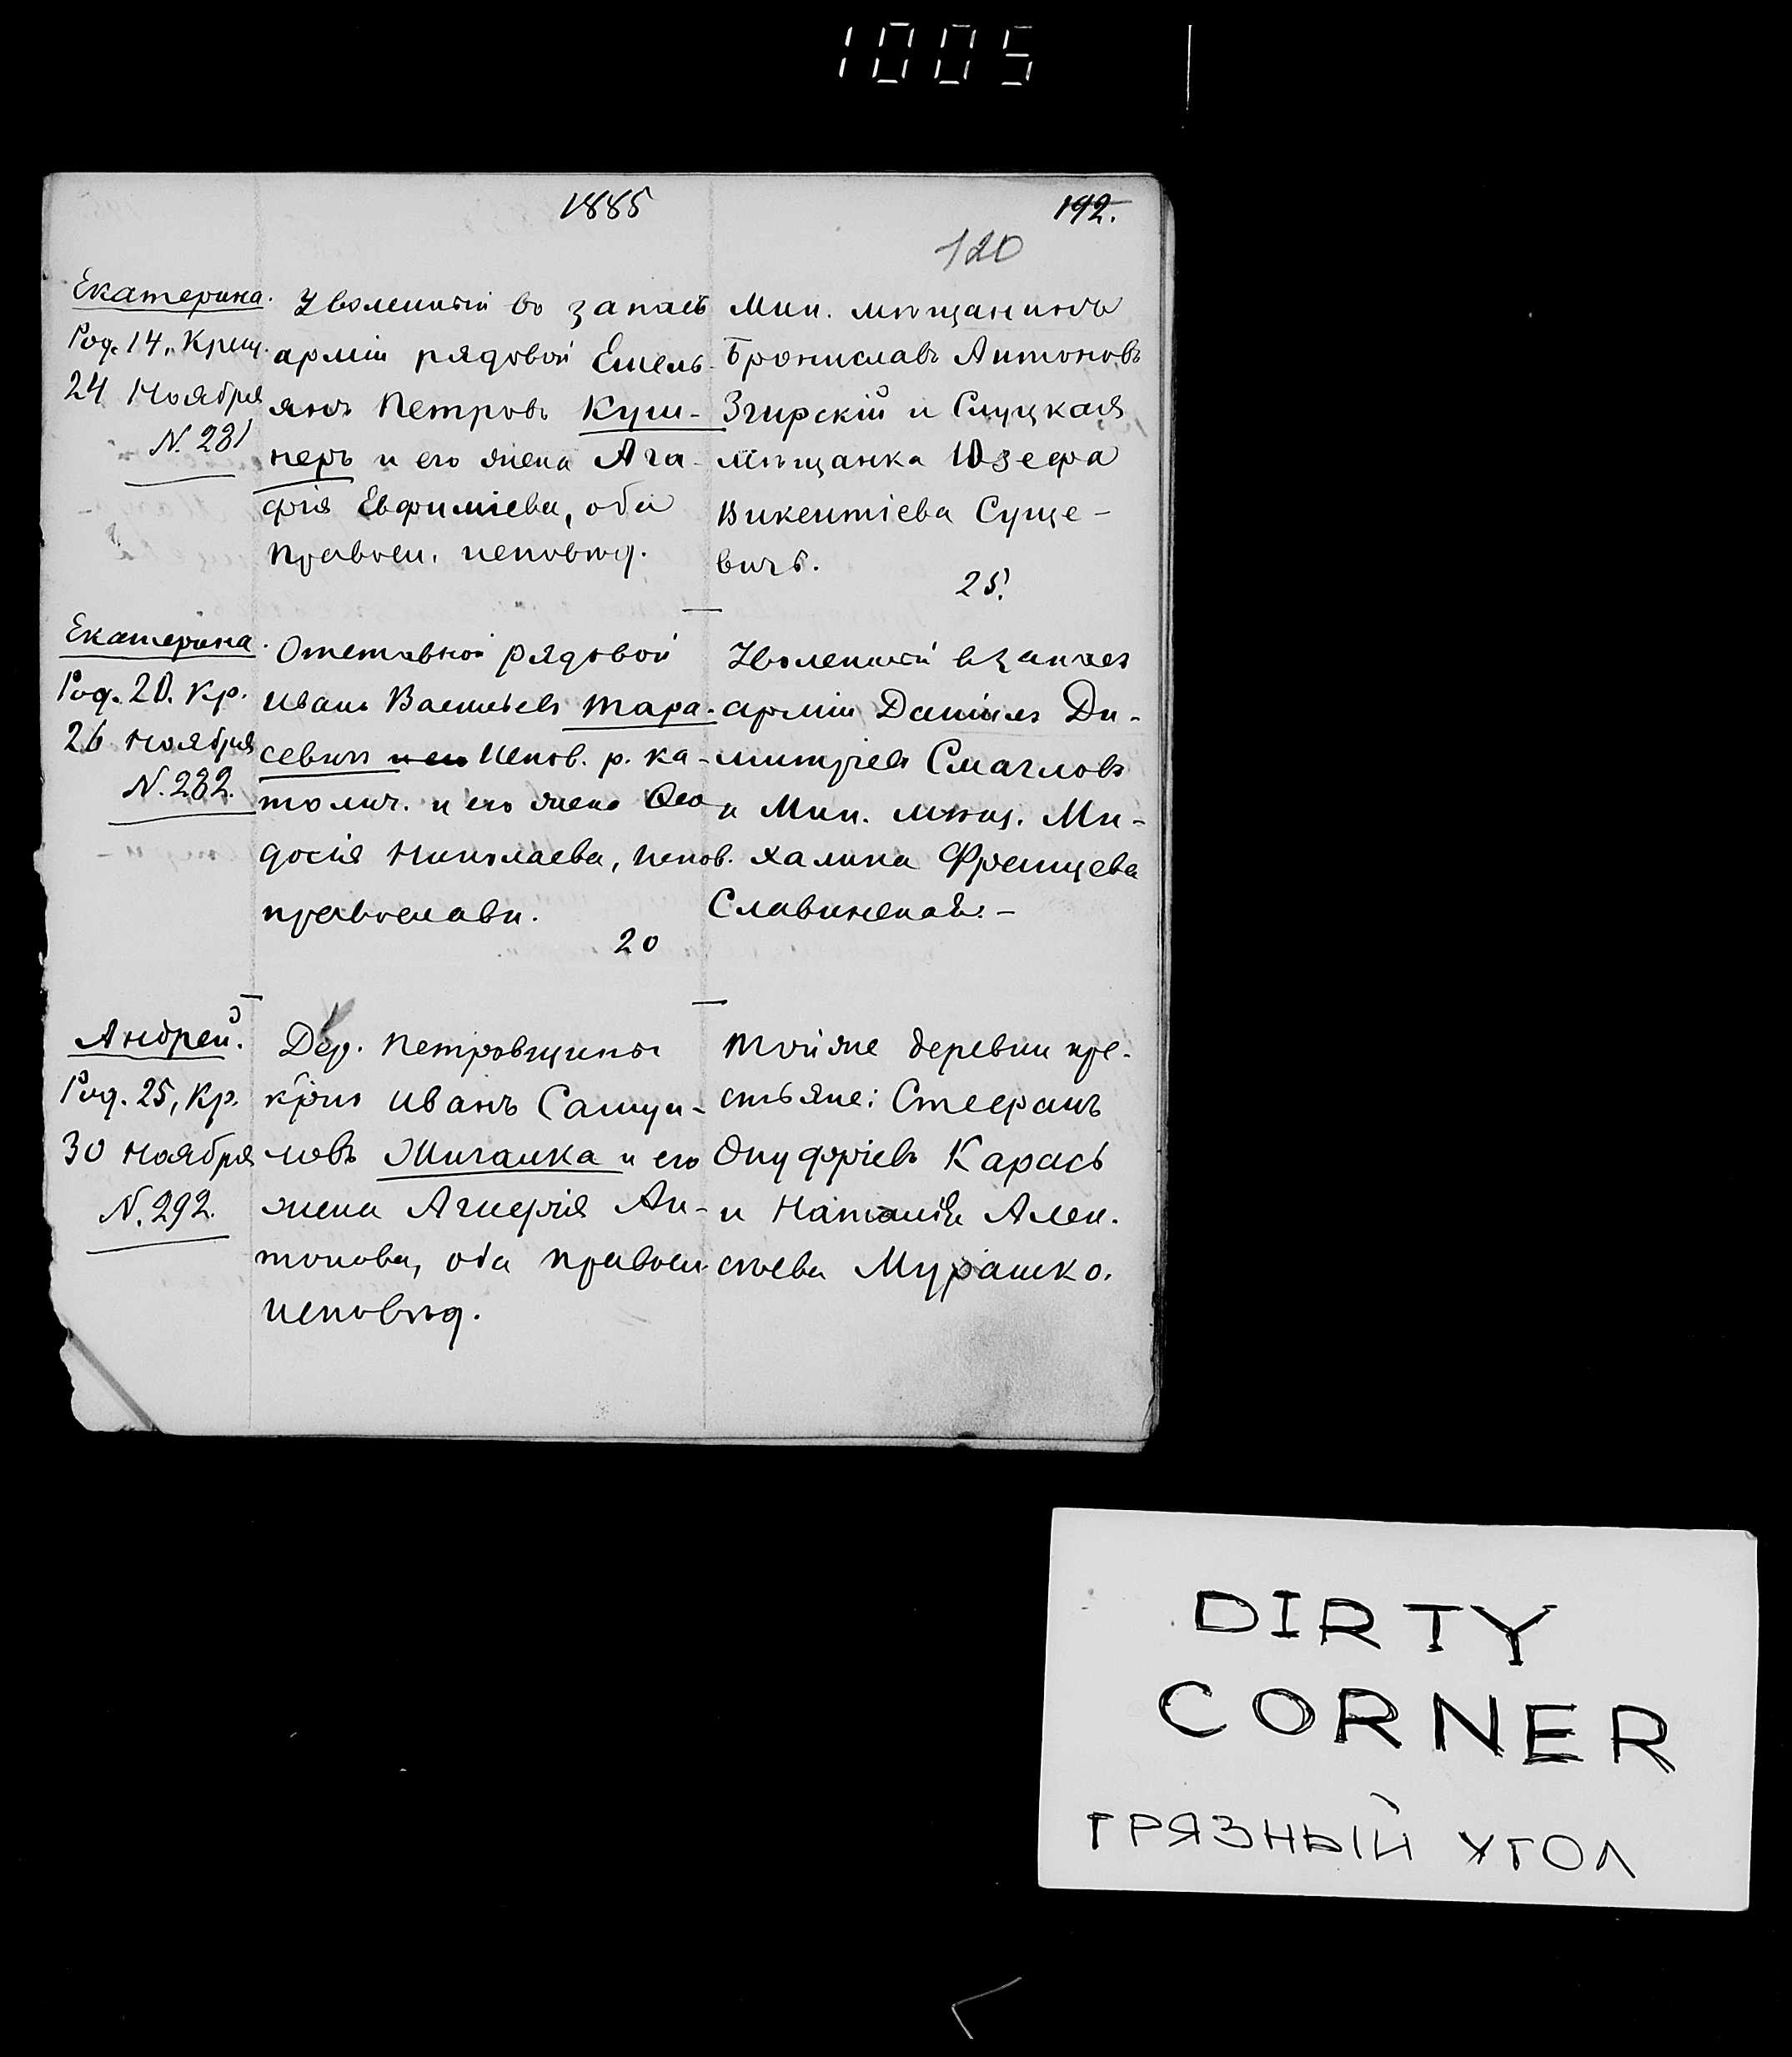 1005
1885
192.
120
Екатерина.
Род. 14, Крещ.
24 Ноября
N. 281
Уволенный во запасъ
арміи рядовой Емель-
янъ Петровъ Куш-
неръ и его жена Ага-
фія Евфиміева, оба
правосл. исповѣд.
Мин. мѣщанинъ
Брониславъ Антоновъ
Згирскій и Слуцкая
мѣщанка Юзефа
Викентіева Суще-
вичъ.
25.
Екатерина.
Род. 20. Кр.
26 Ноября
N. 282.
Отставной рядовой
Иванъ Васильевъ Тара-
севичъ и его Испов. р. ка-
толич. и его жена Ѳео
досія Николаева, испов.
православн.
20
Уволенный в запасъ
арміи Даніилъ Ди-
митріевъ Смагловъ
и Мин. мѣщ. Ми-
халина Францева
Славинская. -
Андрей.
Род. 25, Кр.
30 Ноября
N. 292.
Дер. Петровщины
крнъ Иванъ Самуи-
ловъ Жиганка и его
жена Агафія Ан-
тонова, оба правосл.
исповѣд.
Той же деревни кре-
стьяне: Стефанъ
Онуфріевъ Карась
и Наталія Алек-
сѣева Мурашко.
DIRTY
CORNER
ГРЯЗНЫЙ УГОЛ